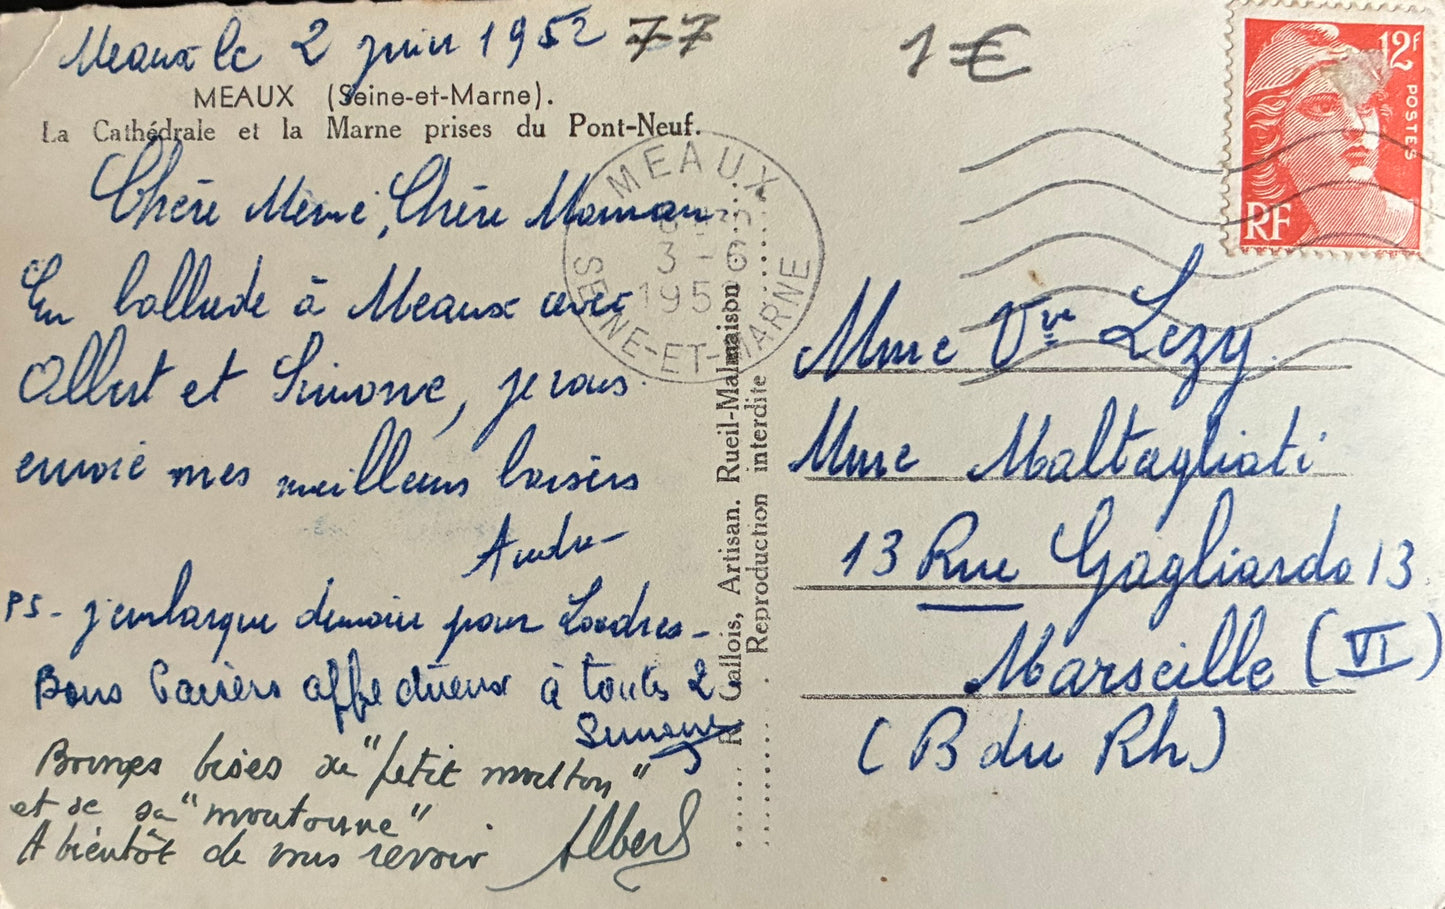 Meaux le 2 juin 1952 77
1 €
MEAUX (Seine-et-Marne).
La Cathédrale et la Marne prises du Pont-Neuf.
Chère Mémé, Chère Maman
En ballade à Meaux avec
Albert et Simone, je vous
envoie mes meilleurs baisers
André
PS - j'embarque demain pour Londres -
Bons baisers affectueux à toutes 2
Simone
Bonnes bises du "petit mouton"
et de sa "moutonne"
A bientôt de vous revoir Albert
MEAUX
3 - 6
195
SEINE-ET-MARNE
R. Gallois, Artisan. Rueil-Malmaison
Reproduction interdite
12f
POSTES
RF
Mme Vve Lezy
Mme Maltagliati
13 Rue Gagliardo 13
Marseille (VI)
(B du Rh)